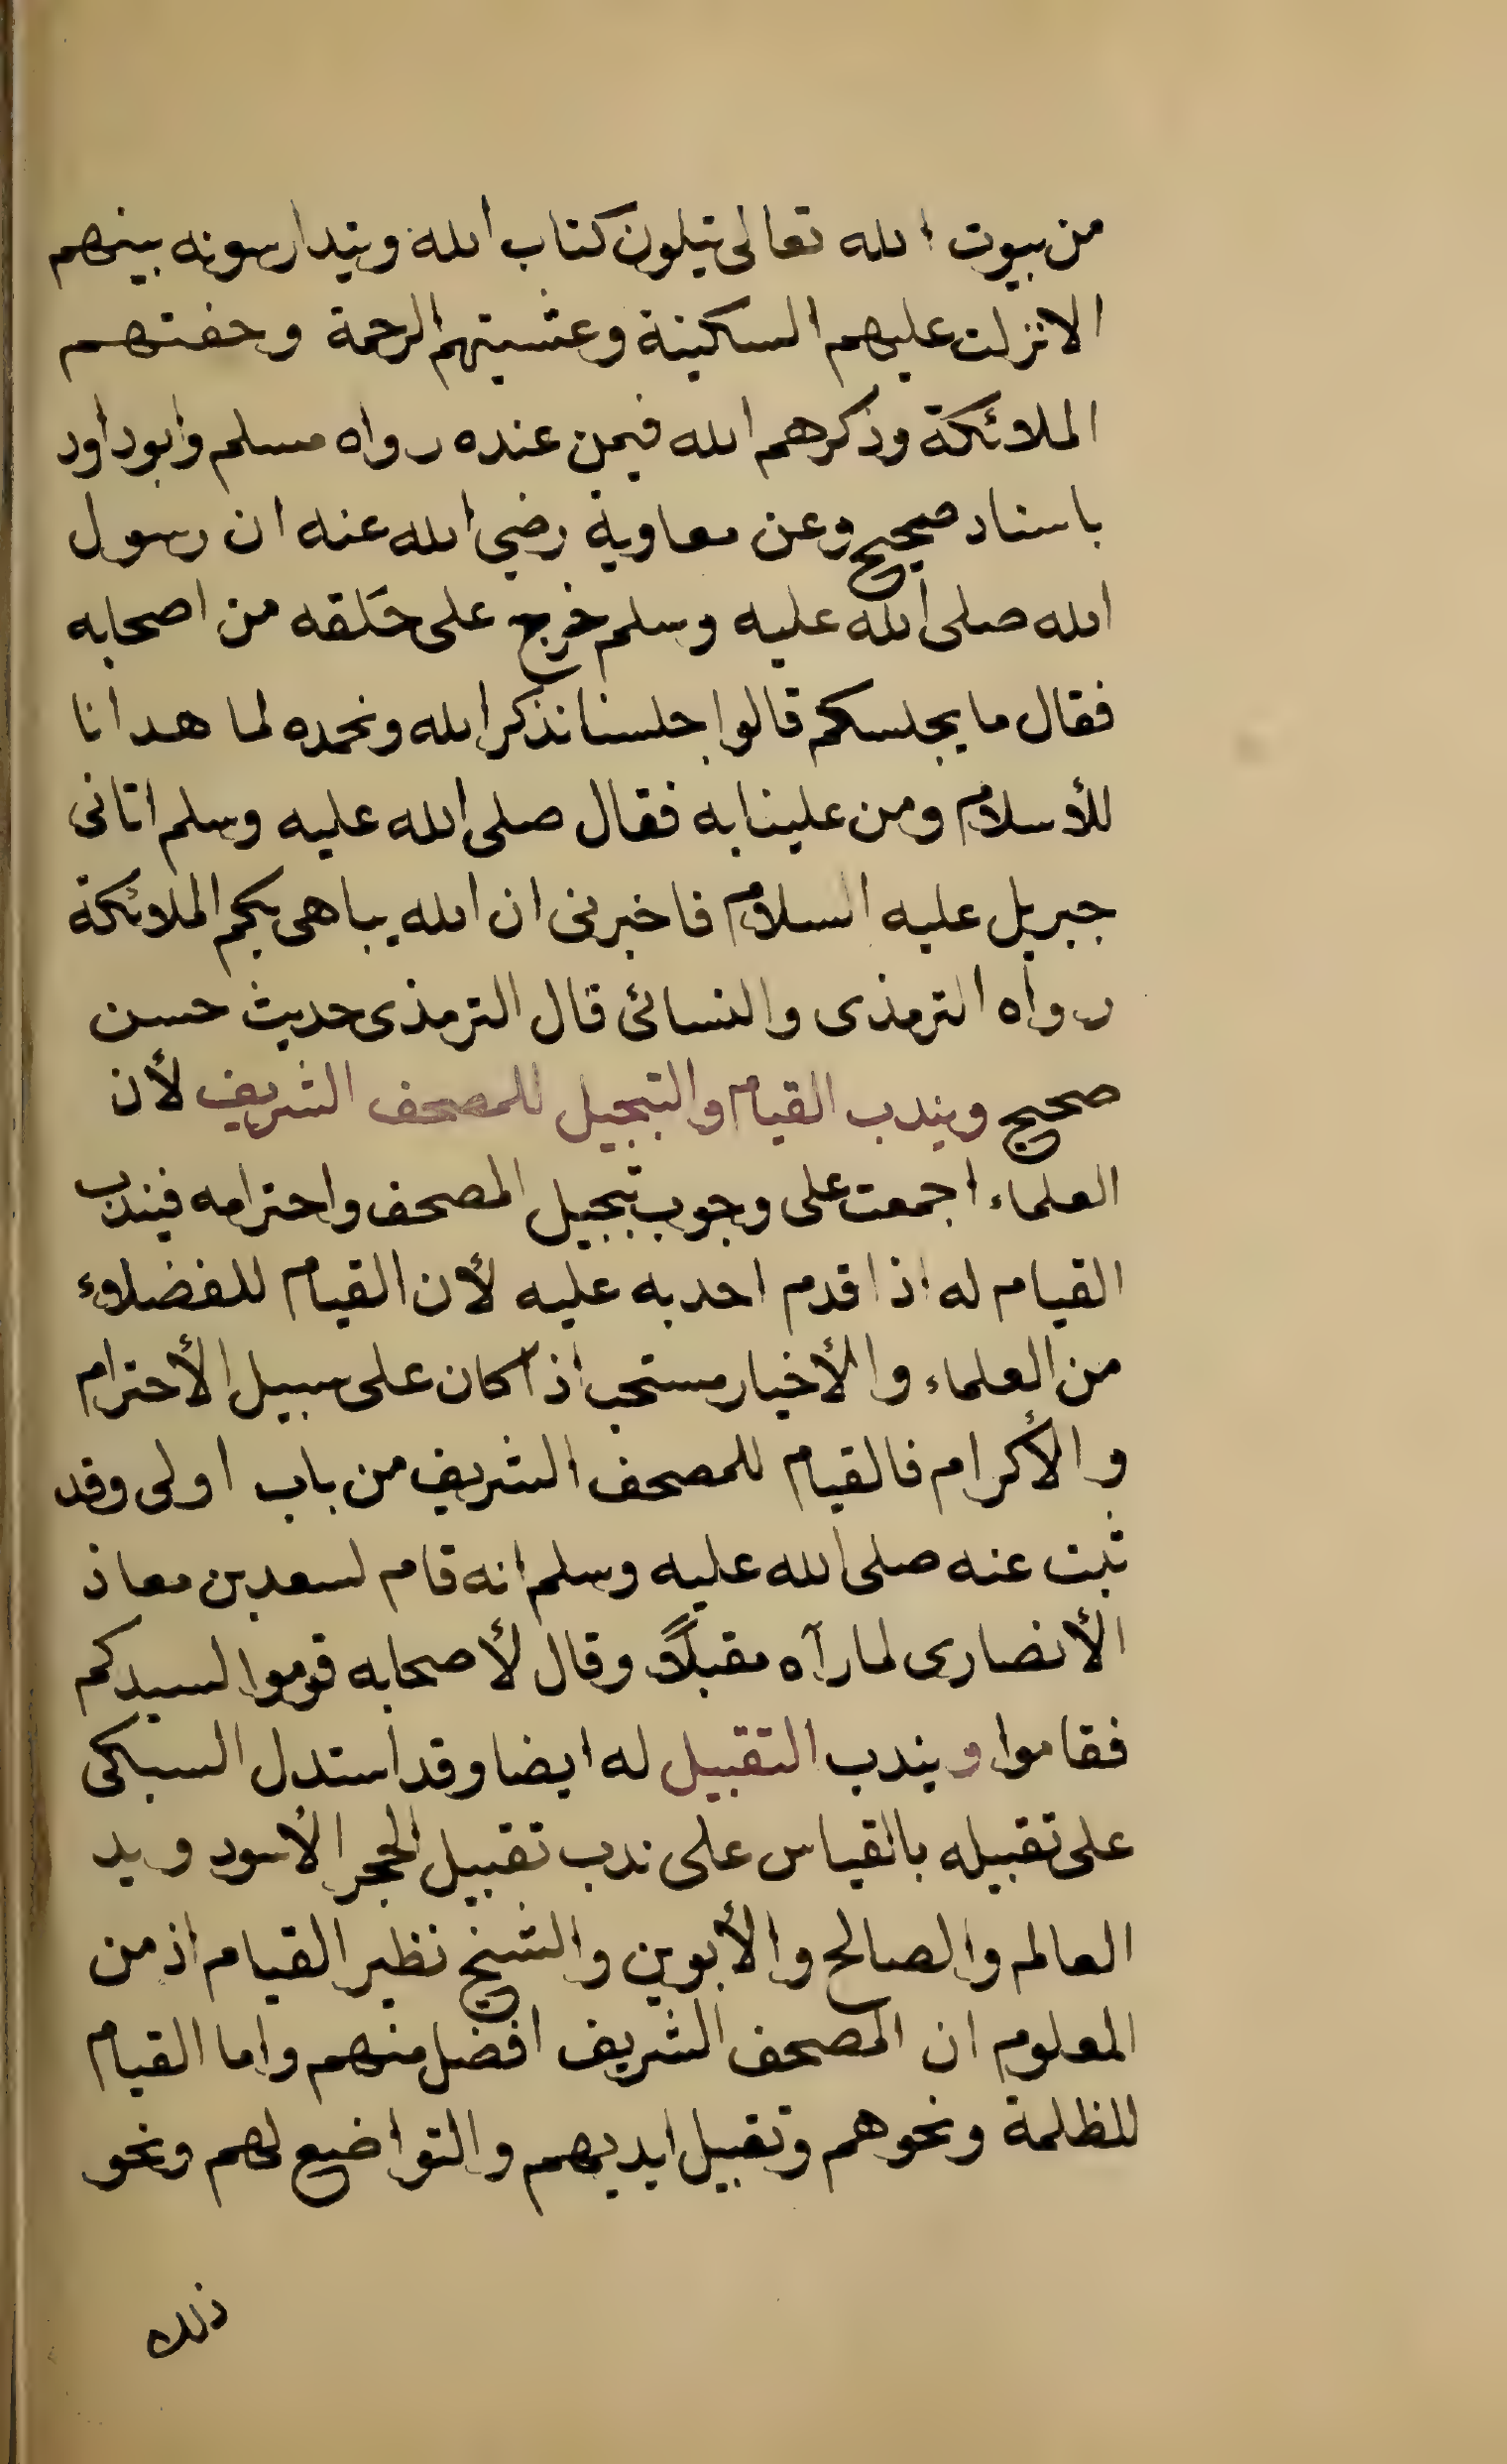 من بيوت الله تعالى يتلون كتاب الله ويتدارسونه بينهم
الا نزلت عليهم السكينة وغشيتهم الرحمة وحفتهم
الملائكة وذكرهم الله فيمن عنده رواه مسلم وابو داود
باسناد صحيح وعن معاوية رضي الله عنه ان رسول
الله صلى الله عليه وسلم خرج على حَلقه من اصحابه
فقال ما يجلسكم قالوا جلسنا نذكر الله ونحمده لما هدانا
للأسلام ومن علينا به فقال صلى الله عليه وسلم اتانى
جبريل عليه السلام فاخبرنى ان الله يباهى بكم الملائكة
رواه الترمذى والنسائى قال الترمذى حديث حسن
صحيح ويندب القيام والتبجيل للمصحف الشريف لأن
العلماء اجمعت على وجوب تبجيل المصحف واحترامه فيندب
القيام له اذا قدم احد به عليه لأن القيام للفضلاء
من العلماء والأخيار مستحب اذا كان على سبيل الأحترام
والأكرام فالقيام للمصحف الشريف من باب اولى وقد
ثبت عنه صلى الله عليه وسلم انه قام لسعد بن معاذ
الأنصارى لما رآه مقبلاً وقال لأصحابه قوموا لسيدكم
فقاموا ويندب التقبيل له ايضا وقد استدل السبكى
على تقبيله بالقياس على ندب تقبيل الحجر الأسود ويد
العالم والصالح والأبوين والشيخ نظير القيام اذ من
المعلوم ان المصحف الشريف افضل منهم واما القيام
للظلمة ونحوهم وتقبيل ايديهم والتواضع لهم ونحو
ذلك